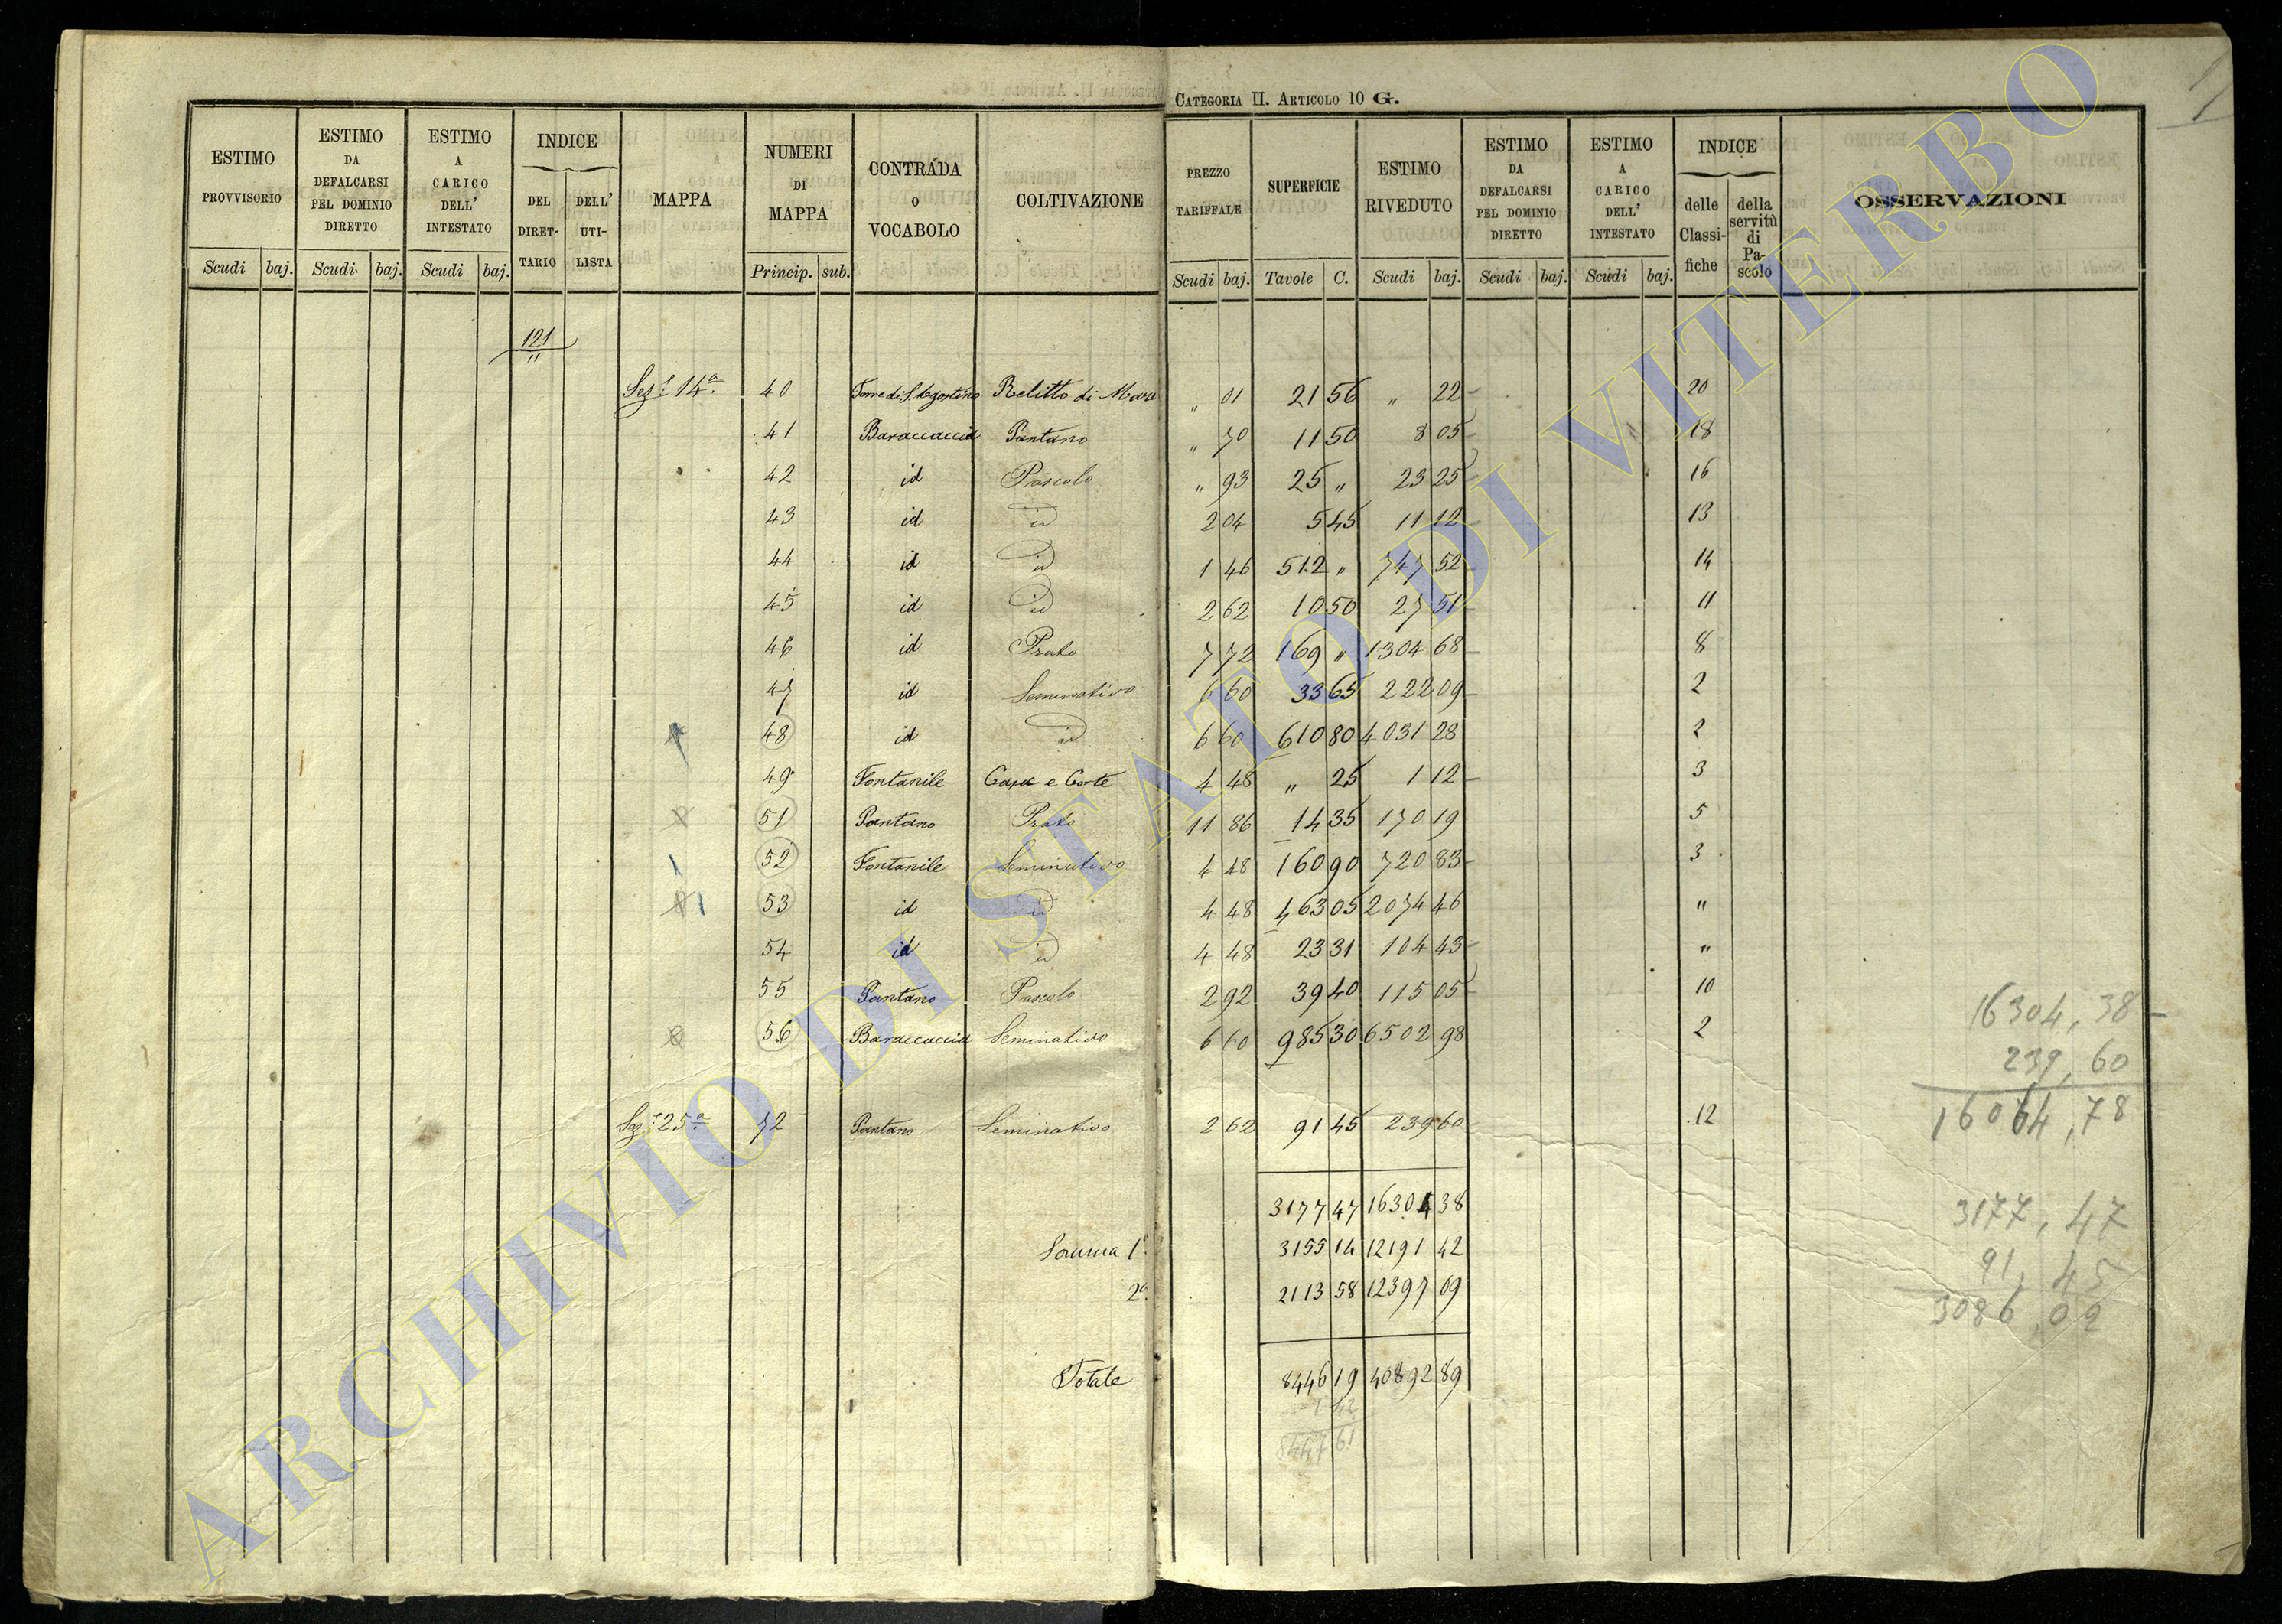 CATEGORIA II. ARTICOLO 10 G.
ESTIMO PROVVISORIO | ESTIMO DA DEFALCARSI PEL DOMINIO DIRETTO | ESTIMO A CARICO DELL' INTESTATO | INDICE DEL DIRETTARIO | DELL' UTILISTA | MAPPA | NUMERI DI MAPPA | CONTRADA O VOCABOLO | COLTIVAZIONE | PREZZO TARIFFALE | SUPERFICIE | ESTIMO RIVEDUTO | ESTIMO DA DEFALCARSI PEL DOMINIO DIRETTO | ESTIMO A CARICO DELL' INTESTATO | INDICE delle Classifiche | della servitù di Pascolo | OSSERVAZIONI
Scudi | baj. | Scudi | baj. | Scudi | baj. | Princip. | sub. | Scudi | baj. | Tavole | C. | Scudi | baj. | Scudi | baj. | Scudi | baj.
121
"
Sez.e 14a. 40 Torre di S. Agostino Relitto di Mare " 01 21 56 " 22 20
41 Baraccaccia Pantano " 70 11 50 8 05 18
42 id Pascolo " 93 25 " 23 25 16
43 id id 2 04 5 45 11 12 13
44 id id 1 46 512 " 747 52 14
45 id id 2 62 10 50 27 51 11
46 id Prato 7 72 169 " 1304 68 8
47 id Seminativo 6 60 33 65 222 09 2
48 id id 6 60 610 80 4031 28 2
49 Fontanile Casa e Corte 4 48 " 25 1 12 3
51 Pantano Prato 11 86 14 35 170 19 5
52 Fontanile Seminativo 4 48 160 90 720 83 3
53 id id 4 48 463 05 2074 46 "
54 id id 4 48 23 31 104 43 "
55 Pantano Pascolo 2 92 39 40 115 05 10
56 Baraccaccia Seminativo 6 60 985 30 6502 98 2
Sez.e 25a 72 Pantano Seminativo 2 62 91 45 239 60 12
3177 47 16304 38
Somma 1a. 3155 14 12191 42
2a. 2113 58 12397 09
Totale 8446 19 40892 89
1 42
8447 61
16304,38
239,60
16064,78
3177,47
91,45
3086,02
1
ARCHIVIO DI STATO DI VITERBO